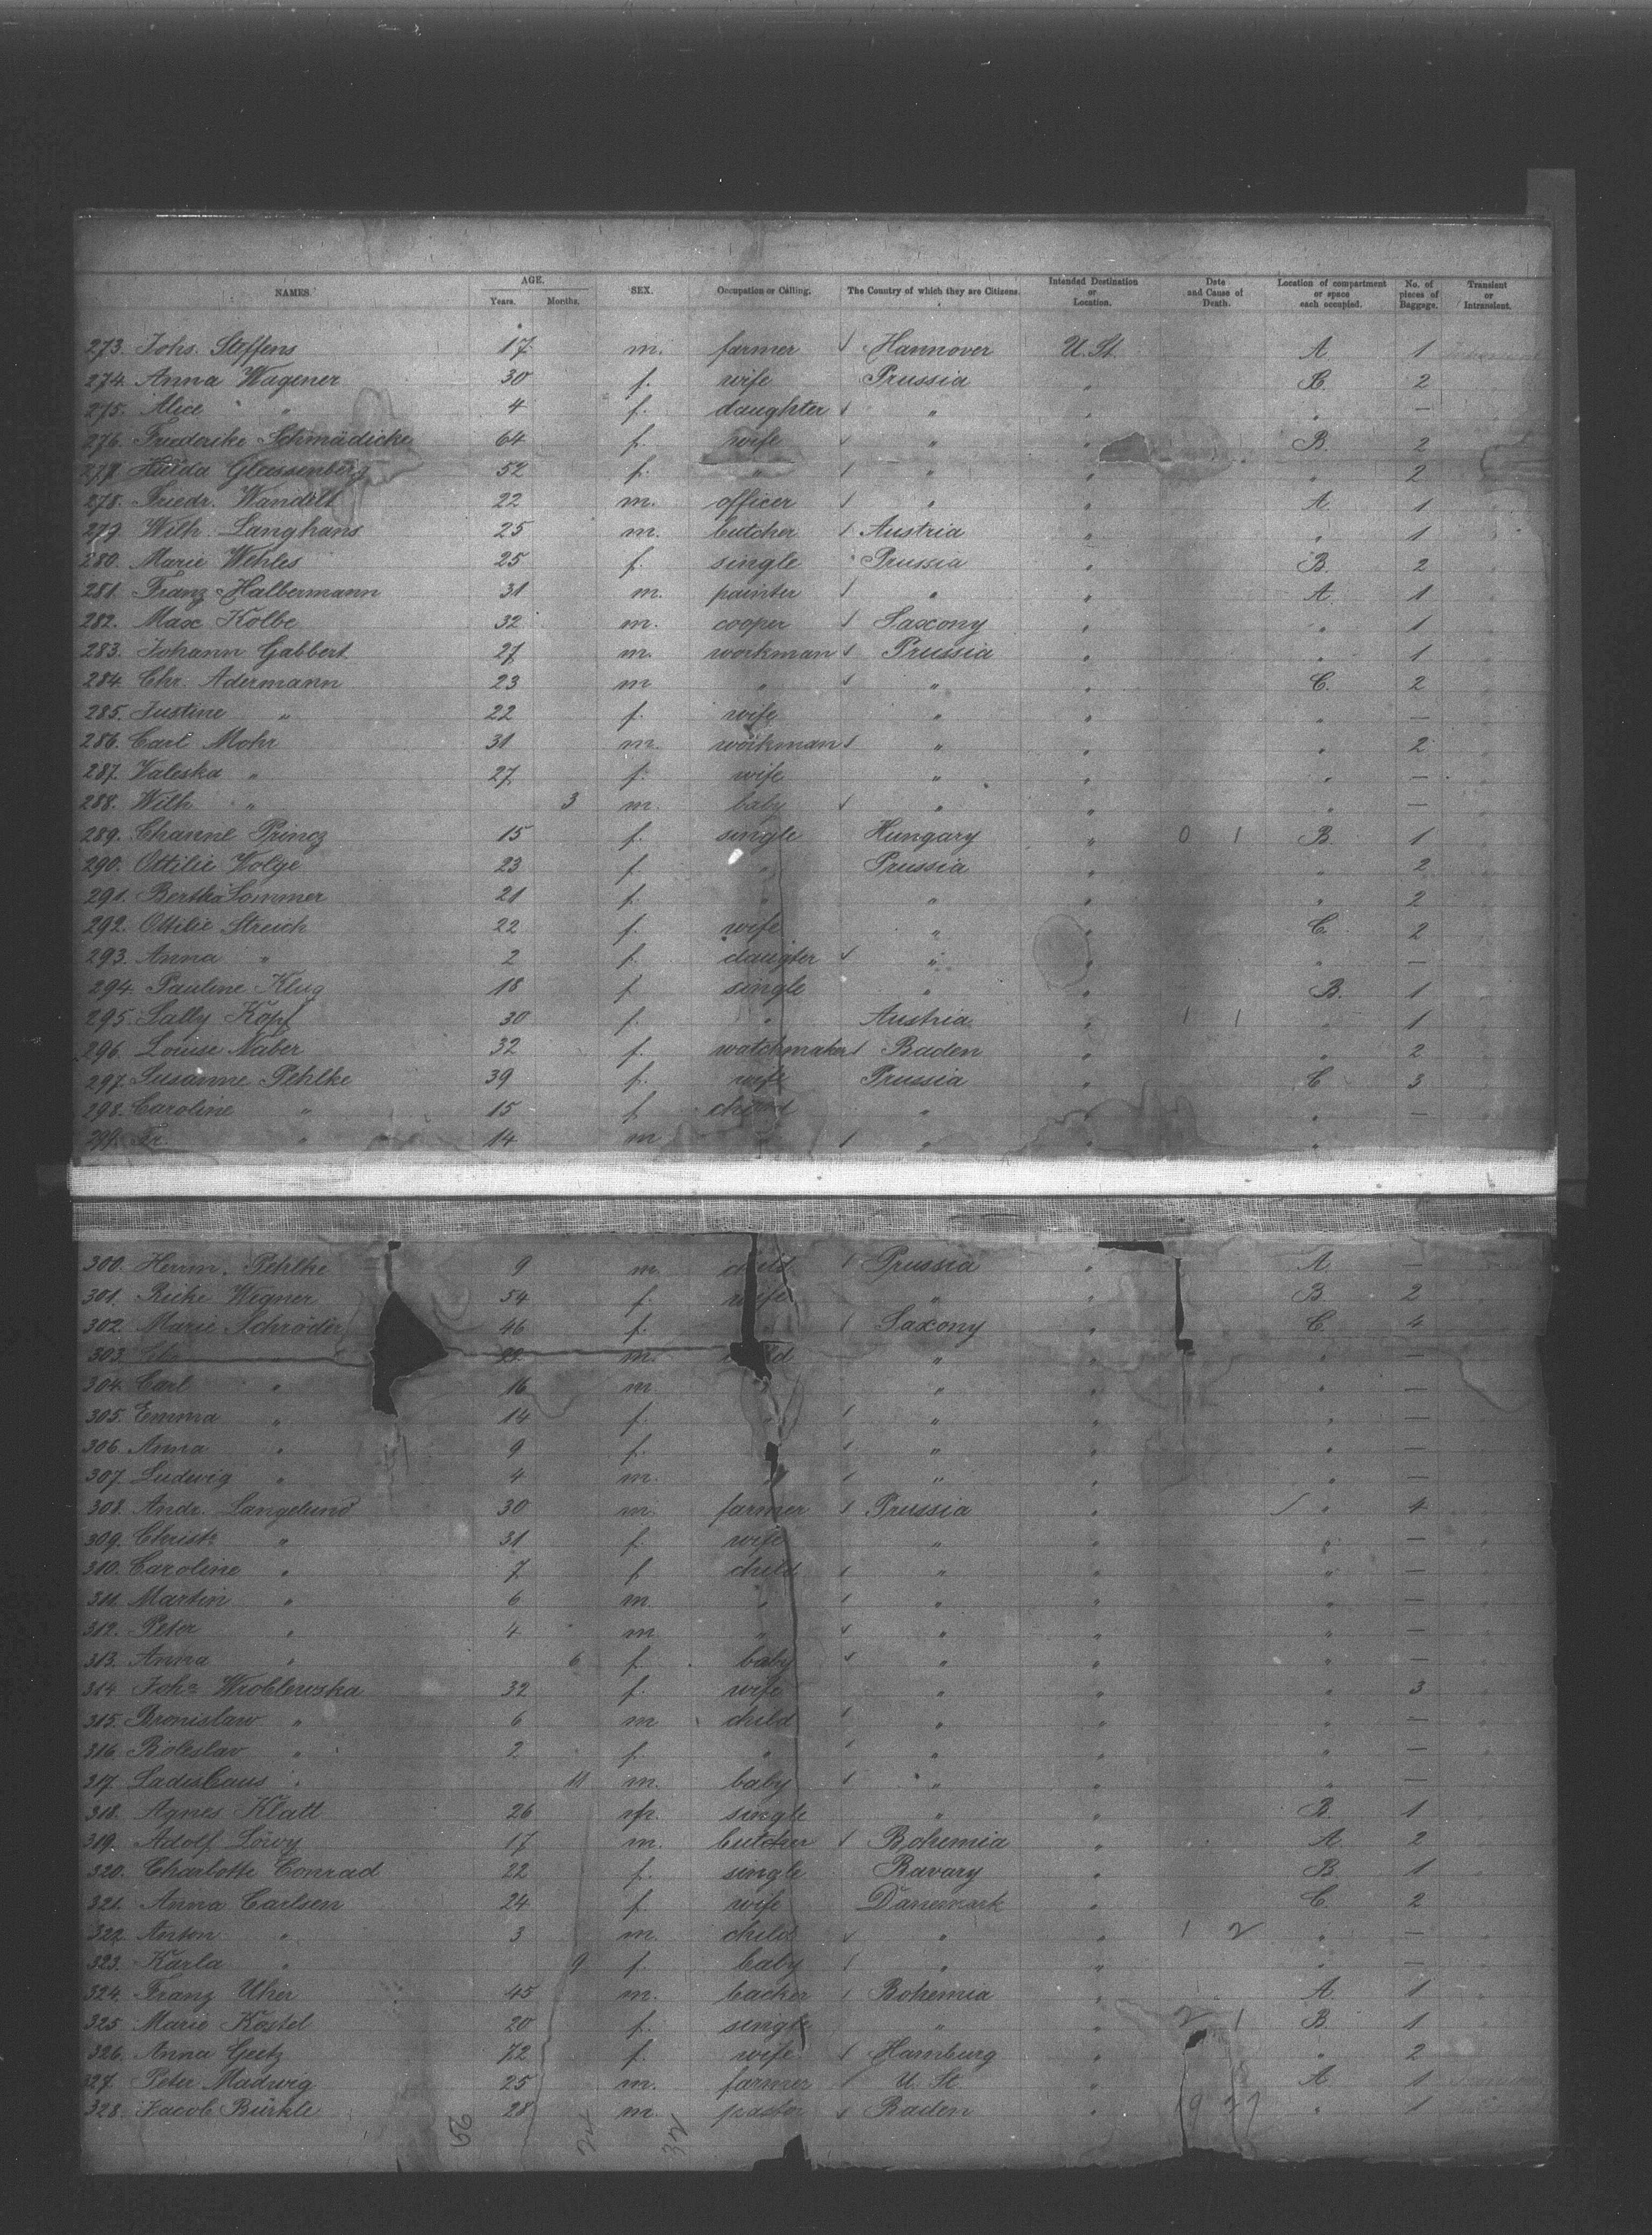 NAMES. AGE. Years. Months. SEX. Occupation or Calling. The Country of which they are Citizens. Intended Destination or Location. Date and Cause of Death. Location of compartment or space each occupied. No. of pieces of Baggage. Transient or Intransient.
273. Johs. Steffens 17 m. farmer Hannover U. St. A. 1
274. Anna Wagener 30 f. wife Prussia " B. 2
275. Alice " 4 f. daughter " " " —
276. Friederike Schmädicke 64 f. wife " " B. 2
277. Hulda Glassenberg 52 f. " " " " 2
278. Friedr. Wandelt 22 m. officer " " A. 1
279. Wilh. Langhans 25 m. butcher Austria " " 1
280. Marie Wehles 25 f. single Prussia " B. 2
281. Franz Halbermann 31 m. painter " " A. 1
282. Max Kolbe 32 m. cooper Saxony " " 1
283. Johann Gabbert 27 m. workman Prussia " " 1
284. Chr. Adermann 23 m " " " C. 2
285. Justine " 22 f. wife " " " —
286. Carl Mohr 31 m. workman " " " 2
287. Valeska " 27 f. wife " " " —
288. Wilh " 3 m. baby " " " —
289. Channe Princz 15 f. single Hungary " 0 1 B. 1
290. Ottilie Wolge 23 f. " Prussia " " 2
291. Bertha Sommer 21 f. " " " " 2
292. Ottilie Streich 22 f. wife " " C. 2
293. Anna " 2 f. daugter " " " —
294. Pauline Klug 18 f. single " " B. 1
295. Sally Kopf 30 f. " Austria " 1 1 " 1
296. Louise Naber 32 f. watchmaker Baden " " 2
297. Susanne Pehlke 39 f. wife Prussia " C 3
298. Caroline " 15 f. child " " " —
299. Fr. " 14 m " " " "
300. Herrm. Pehlke 9 m. child Prussia " A. —
301. Rieke Wegner 54 f. wife " " B. 2
302. Marie Schröder 46 f. " Saxony " C. 4
303. m. " " " —
304. Carl " 16 m. " " " " —
305. Emma " 14 f. " " " " —
306. Anna " 9 f. " " " " —
307. Ludwig " 4 m. " " " " —
308. Andr. Langelund 30 m. farmer Prussia " " 4
309. Christe " 31 f. wife " " " —
310. Caroline " 7 f child " " " —
311. Martin " 6 m. " " " " —
312. Peter " 4 m " " " " —
313. Anna " 6 f. baby " " " —
314. Johe Wroblewska 32 f. wife " " " 3
315. Bronislaw " 6 m child " " " —
316. Boleslav " 2 f. " " " " —
317. Ladislaus " 11 m. baby " " " —
318. Agnes Klatt 26 f. single " " B. 1
319. Adolf Löwy 17 m. butcher Bohemia " A. 2
320. Charlotte Conrad 22 f. single Bavary " B. 1
321. Anna Carlsen 24 f. wife Danemark " C. 2
322. Anton " 3 m. child " " 1 2 " —
323. Karla " 9 f. baby " " " —
324. Franz Uher 45 m. backer Bohemia " A. 1
325. Marie Kostel 20 f. single " " 2 1 B. 1
326. Anna Geetz 72 f. wife Hamburg " " 2
327. Peter Madwig 25 m. farmer U. St. " A. 1
328. Jacob Bürkle 28 m. pastor Baden " " 1